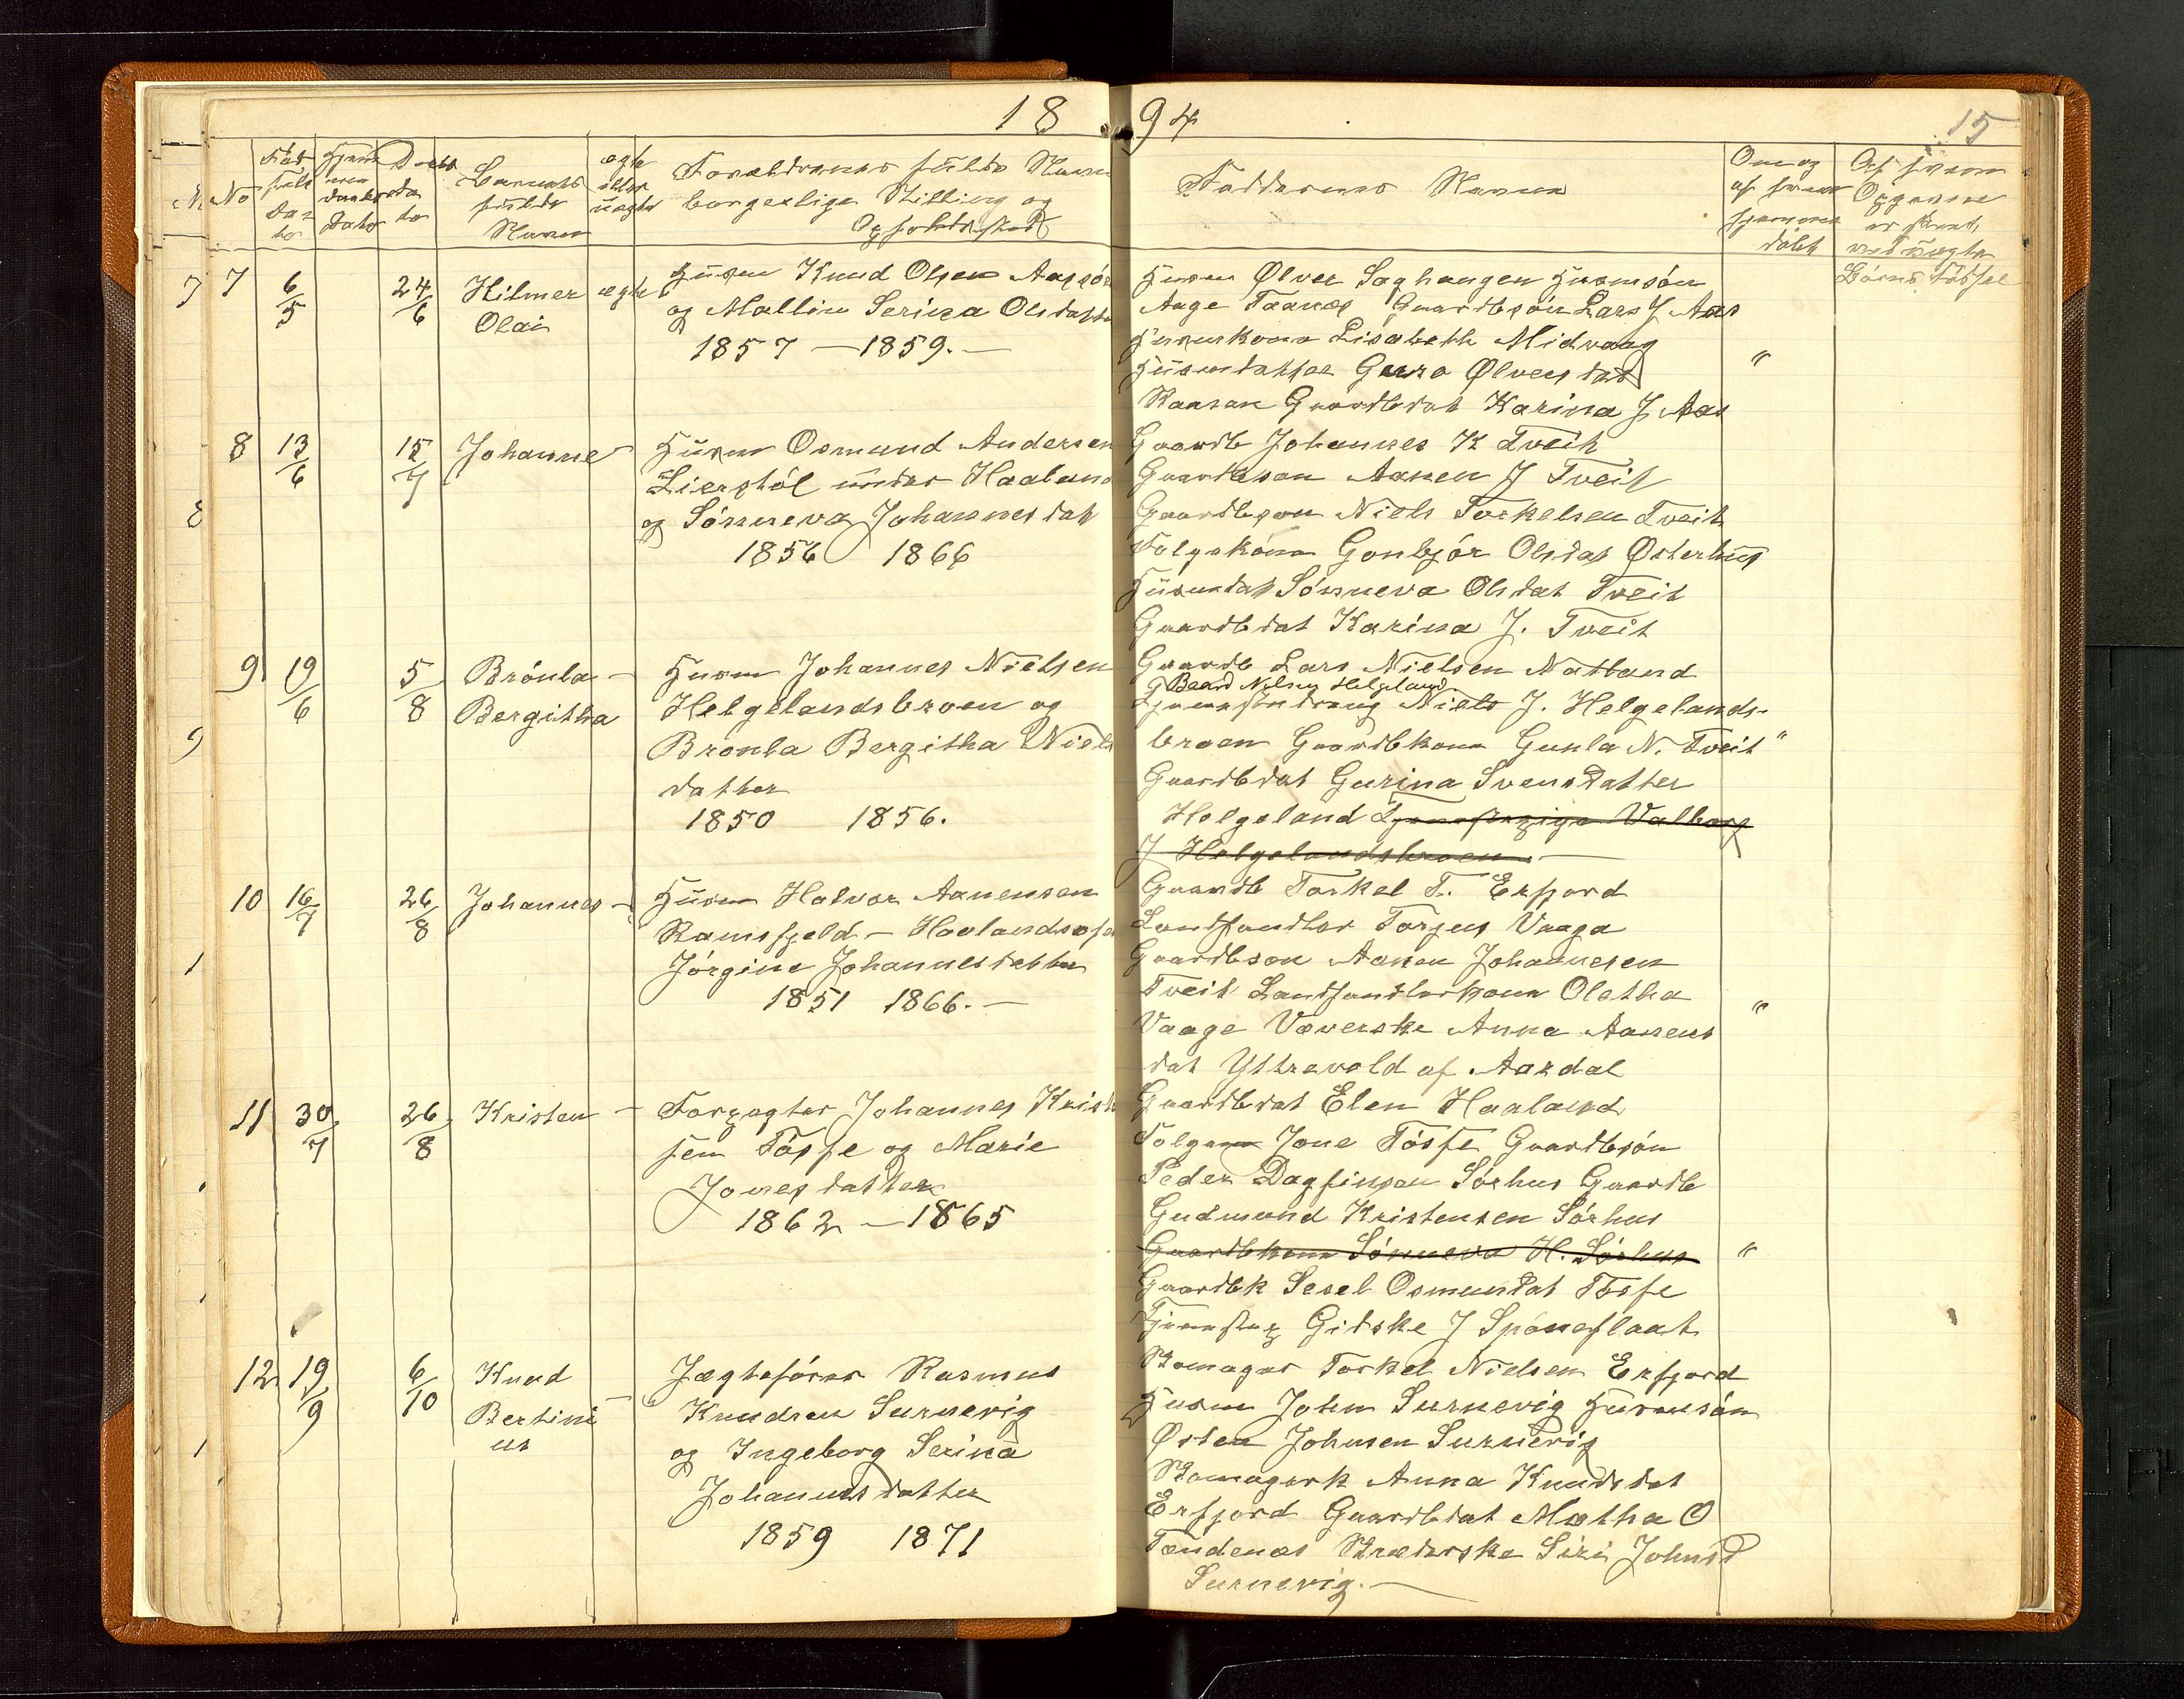 18 94
15
No
Fød
sels
da
to
Hjem
me
døbtes
Dato
Døbt
da
to
Barnets
fulde
Navn
ægte
eller
uægte
Forældrenes fulde Navn
borgerlige Stilling og
Opholdssted
Faddernes Navne
Om og
af hvem
hjemme
døbt
Af hvem
Opgavene
er skeet,
ved uægte
Børns Fødsel
7 7 6/5 24/6 Hilmer ægte
Olai
Husm Knud Olsen
og Mallin Serina Olsdatte
1857 – 1859. –
Husm Ølver Saghaugen Husmsøn
Aage Taanes Gaardbsøn Lars J Aas
Husmkona Lisabeth Midvaag
Husmdatter Guro Ølversdat
Gaardbdat Karina J. Aas
"
8 13/6 15/7 Johanne
Husm Osmund Andersen
Lierstøl under Haaland
og Sønneva Johannesdat
1856 1866
Gaardb Johannes K Tveit
Gaardbson Aanen J Tveit
Gaardbson Niels Torkelsen Tveit
Folgekona Gonbjør Olsdat Østerhus
Husmdat Sønneva Olsdat Tveit
Gaardbdat Karina J. Tveit
8
9 19/6 5/8 Brønla –
Bergitha
Husm Johannes Nielsen
Helgelandsbroen og
Bronla Bergitha Niels
datter
1850 1856.
Gaardb Lars Nielsen Natland
G Baard Nilsen Helgeland
Tjenestedreng Niels J. Helgelands-
broen Gaardbkona Gunla N. Tveit "
Gaardbdat Gurina Svensdatter
Helgeland Tjenestepige Valborg
J Helgelandsbroen. –
9
10 16/7 26/8 Johannes –
Husm Halvor Aanensen
Ramsfjeld – Haaland
Jørgine Johannesdatter
1851 1866. –
Gaardb Torkel T. Erfjord
Landhandler Torjus Vaaga
Gaardbson Aanen Johannesen
Tveit Landhandlerkona Oletha
Vaage Væverske Anna Aanens
dat Ystrevold af Aardal
"
11 30/7 26/8 Kristen –
Forpagter Johannes Krist
sen Tøsse og Marie
Jonesdatter
1862 – 1865
Gaardbdat Elen Haaland
Folgem Jone Tøsse Gaardbsøn
Peder Dagfinsen Sørhus Gaardb
Gudmund Kristensen Sørhus
Gaardbkona Sønneva H. Sørhus "
Gaardbk Sesel Osmundat Tøsse
Gidske J
12 19/9 6/10 Knud
Bertini –
us
Jægtefører Rasmus
Knudsen Surnevig
og Ingeborg Serina
Johannesdatter
1859 1871
Skomager Torkel Nielsen Erfjord
Husm John Surnevig Husmsøn
Østen Johnsen Surnevig
Skomagerk Anna Knudsdat
Erfjord Gaardbdat Martha O
Tændenes Skræderske Siri Johnsd
Surnevig. –